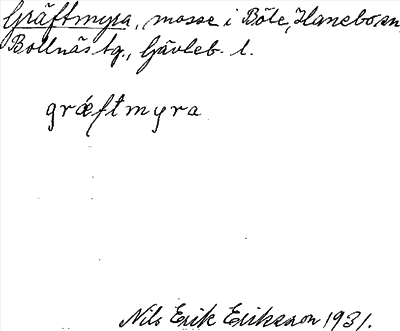 Gräftmyra, mosse i Böle, Hanebo sn,
Bollnäs tg., Gävleb. l.
græftmyra
Nils Erik Eriksson 1931.